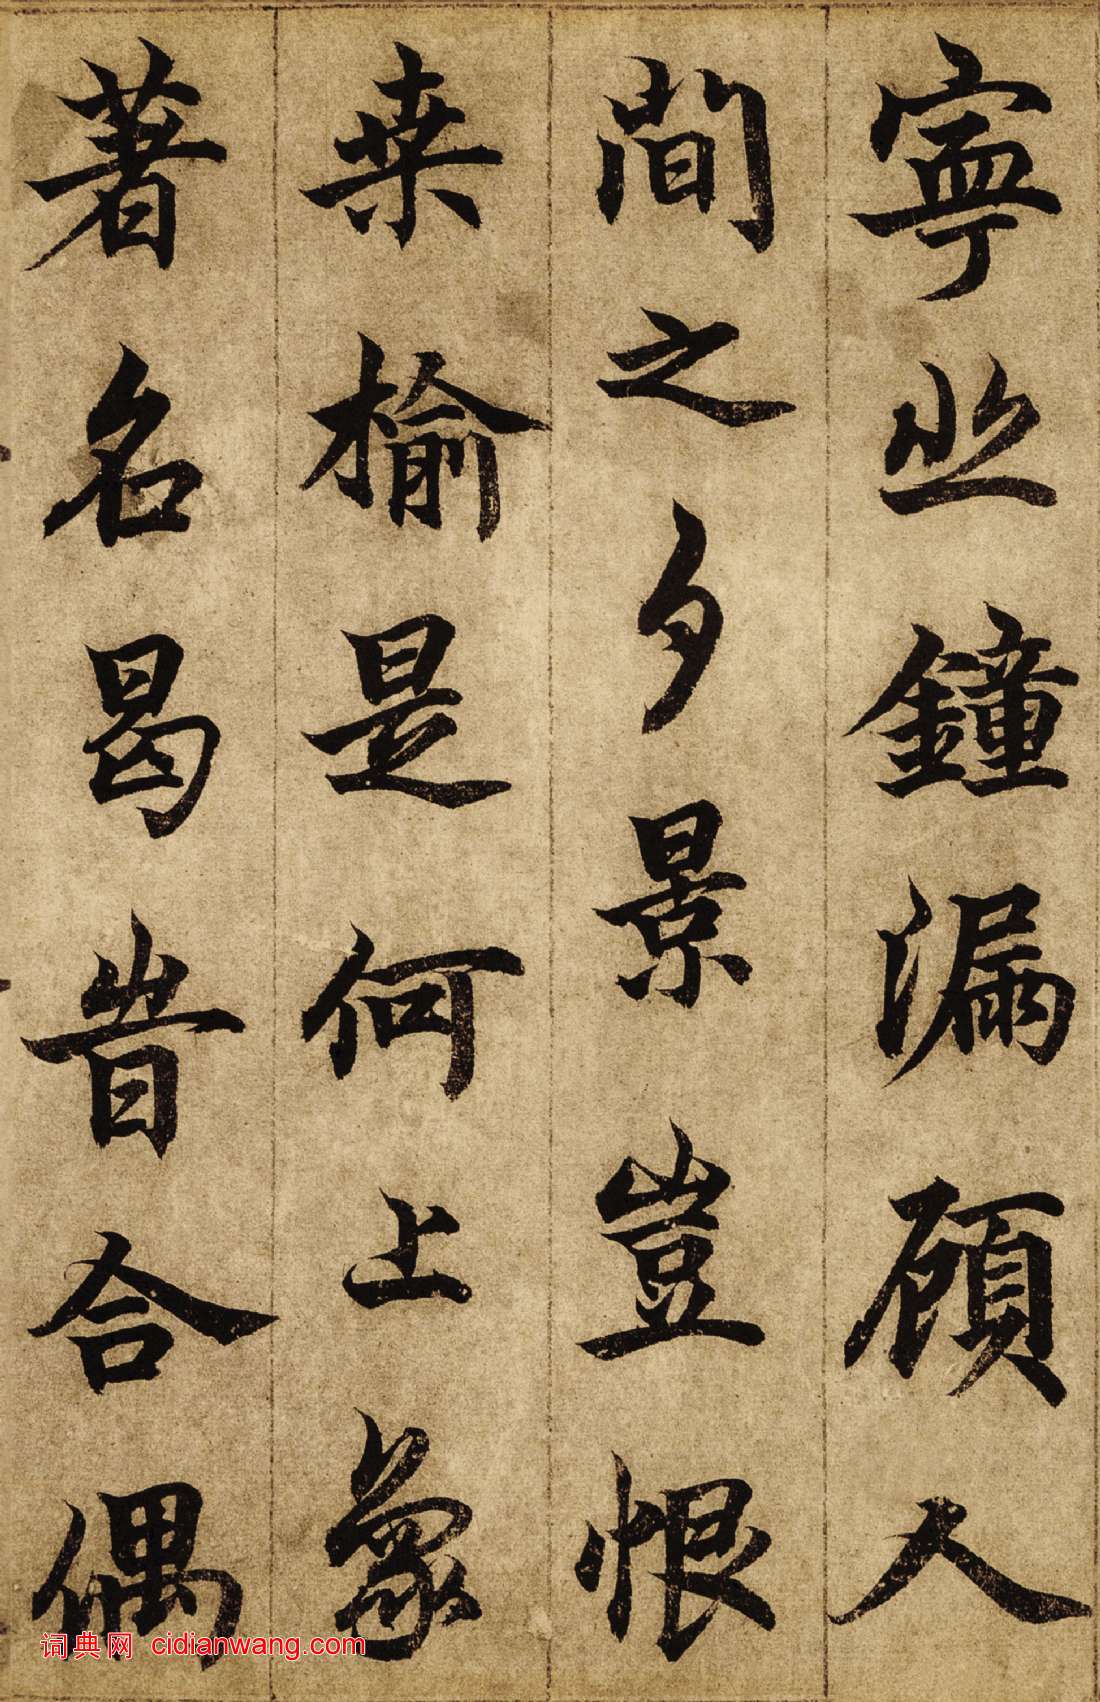 寧鐘漏顧人
間之夕景豈恨
桒榆是何上象
著名曷昔合偶
词典网 cidianwang.com